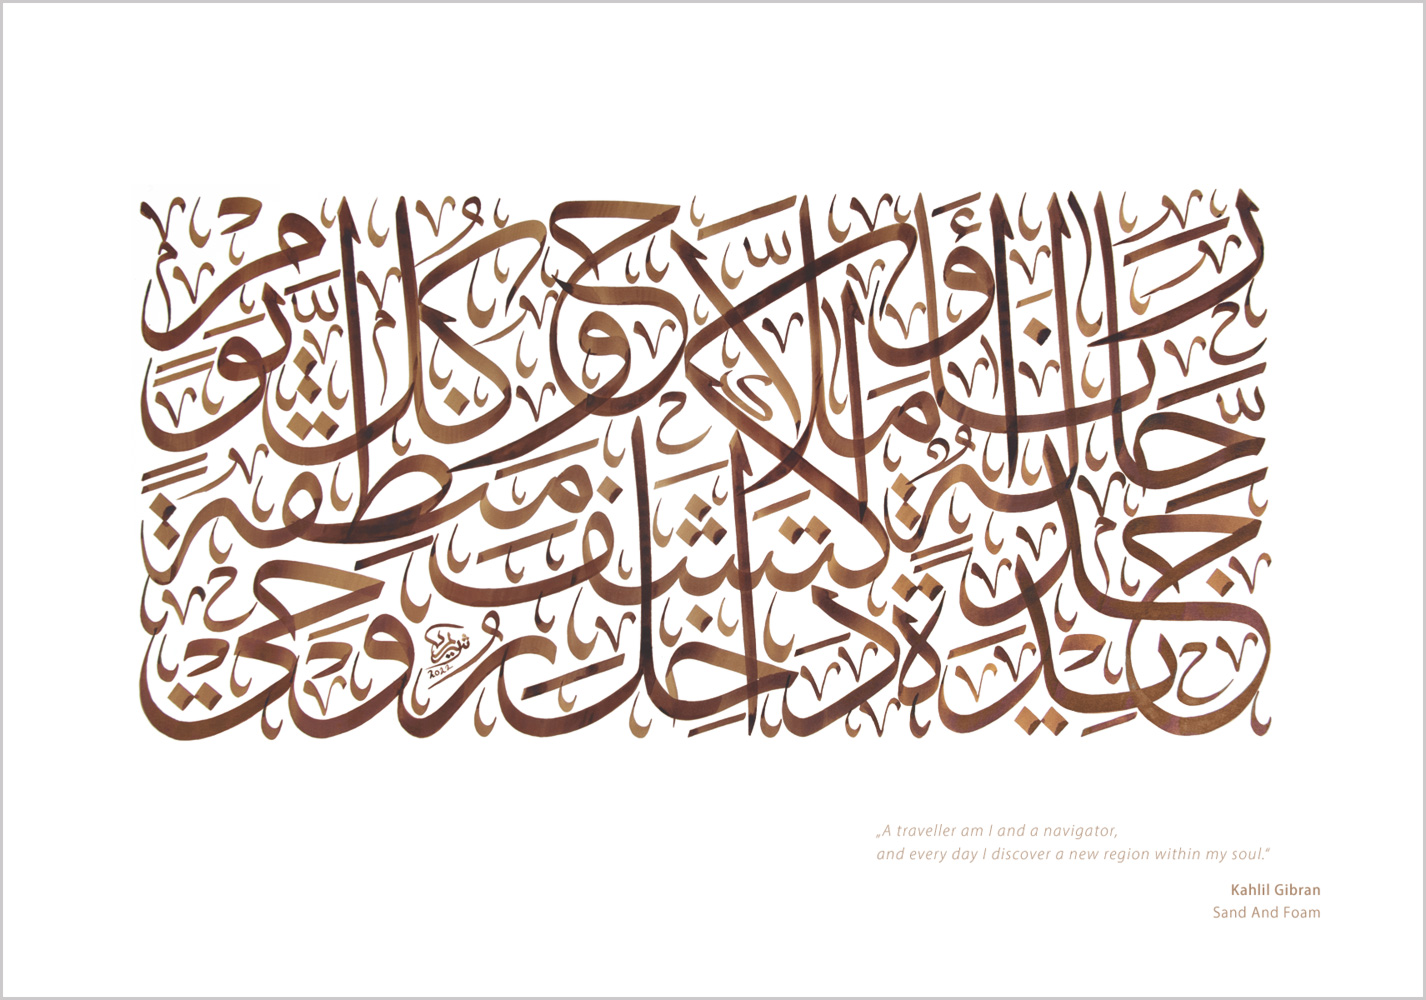 أنا رحّالةٌ وملّاح وكل يوم أكتشف منطقة جديدة داخل روحي
2022
„A traveller am I and a navigator,
and every day I discover a new region within my soul.“
Kahlil Gibran
Sand And Foam